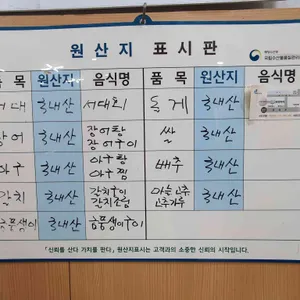 원산지 표시판
국립수산물품질관리원
품 목 원산지 음식명 품 목 원산지 음식명
서대 국내산 서대회 돌게 국내산
장어 국내산 장어탕 쌀 국내산
장어구이
아구 국내산 아구탕 배추 국내산
아구찜
갈치 국내산 갈치구이 마늘고추 국내산
갈치조림 고추가루
금풍생이 국내산 금풍생이구이
「신뢰를 산다 가치를 판다」 원산지표시는 고객과의 소중한 신뢰의 시작입니다.